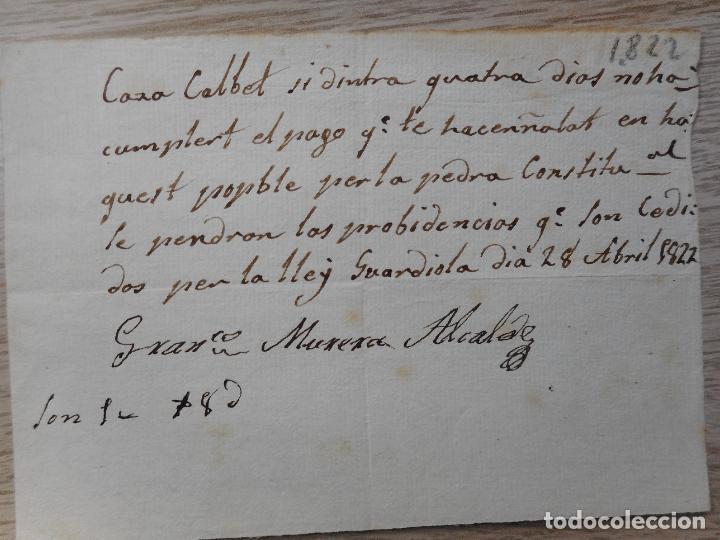 1822
Caza Calbet si dintra quatra dias no ha
cumplert el pago q.e te haceññalat en ha
quest popble per la pedra Constitu_al
le pendran las probidencias q.e son Cedi:
dos per la lley Guardiola dia 28 Abril 1822
Fran.co Munera Alcalde
son 1 8 d
todocoleccion